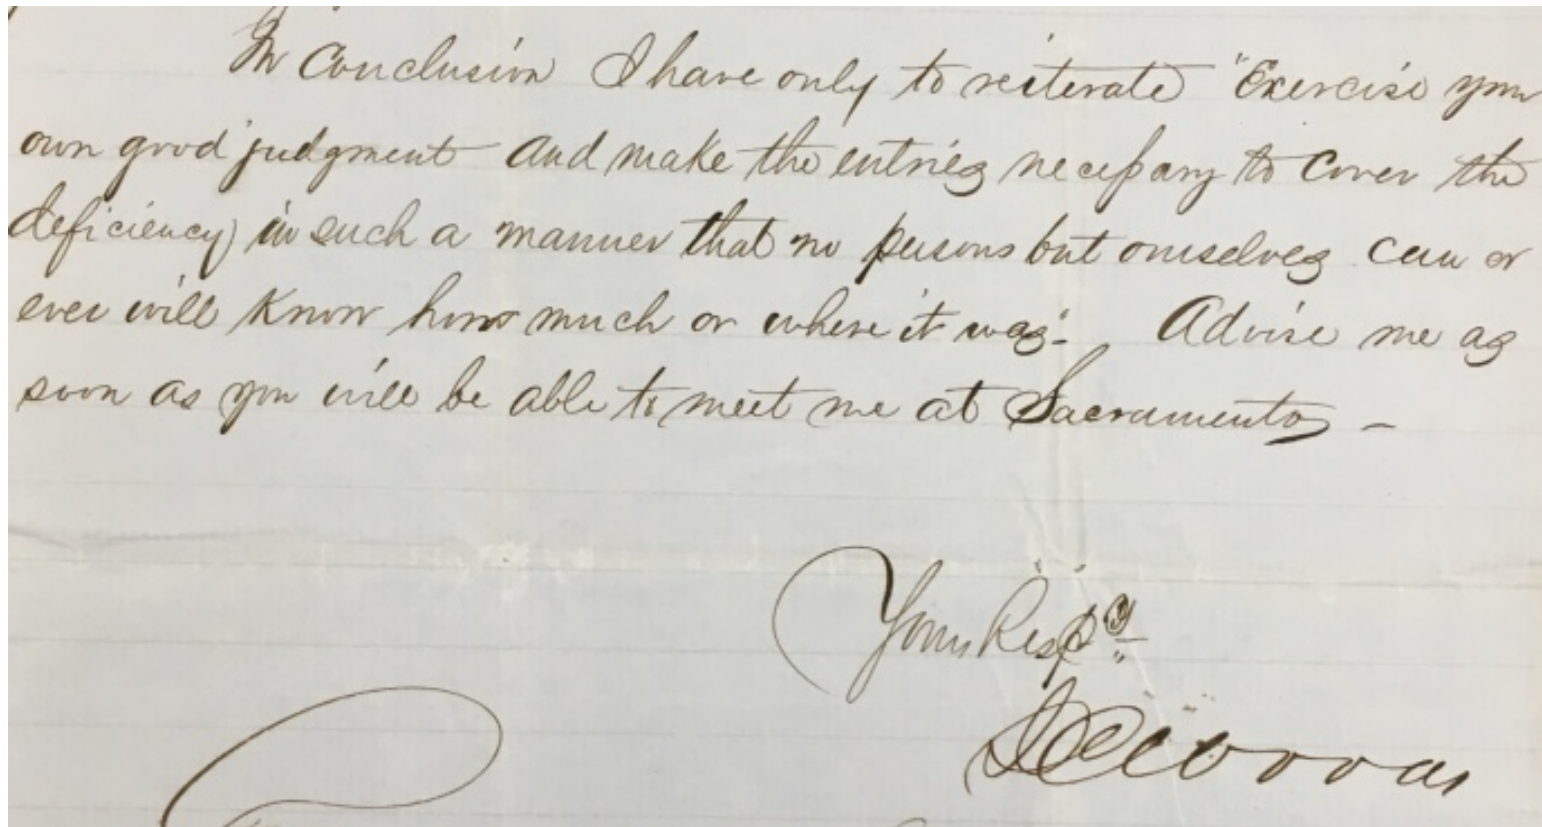 In Conclusion I have only to reiterate "Exercise your
own good judgment and make the entries necessary to cover the
deficiency in such a manner that no persons but ourselves can or
ever will know how much or where it was". Advise me as
soon as you will be able to meet me at Sacramento –
Yours Resp y